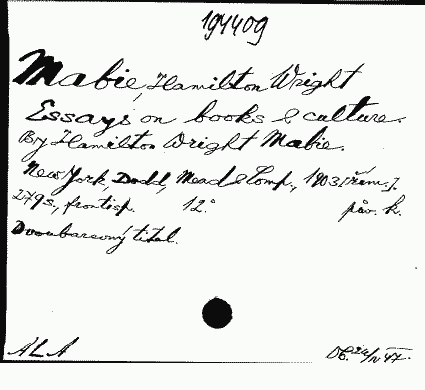 194409
Mabie, Hamilton Wright
Essays on books & culture.
By Hamilton Wright Mabie.
New York, Dodd, Mead & Comp., 1903 [řím.].
279 s., frontisp. 12° pův. k.
Dvoubarevný titul.
ALA